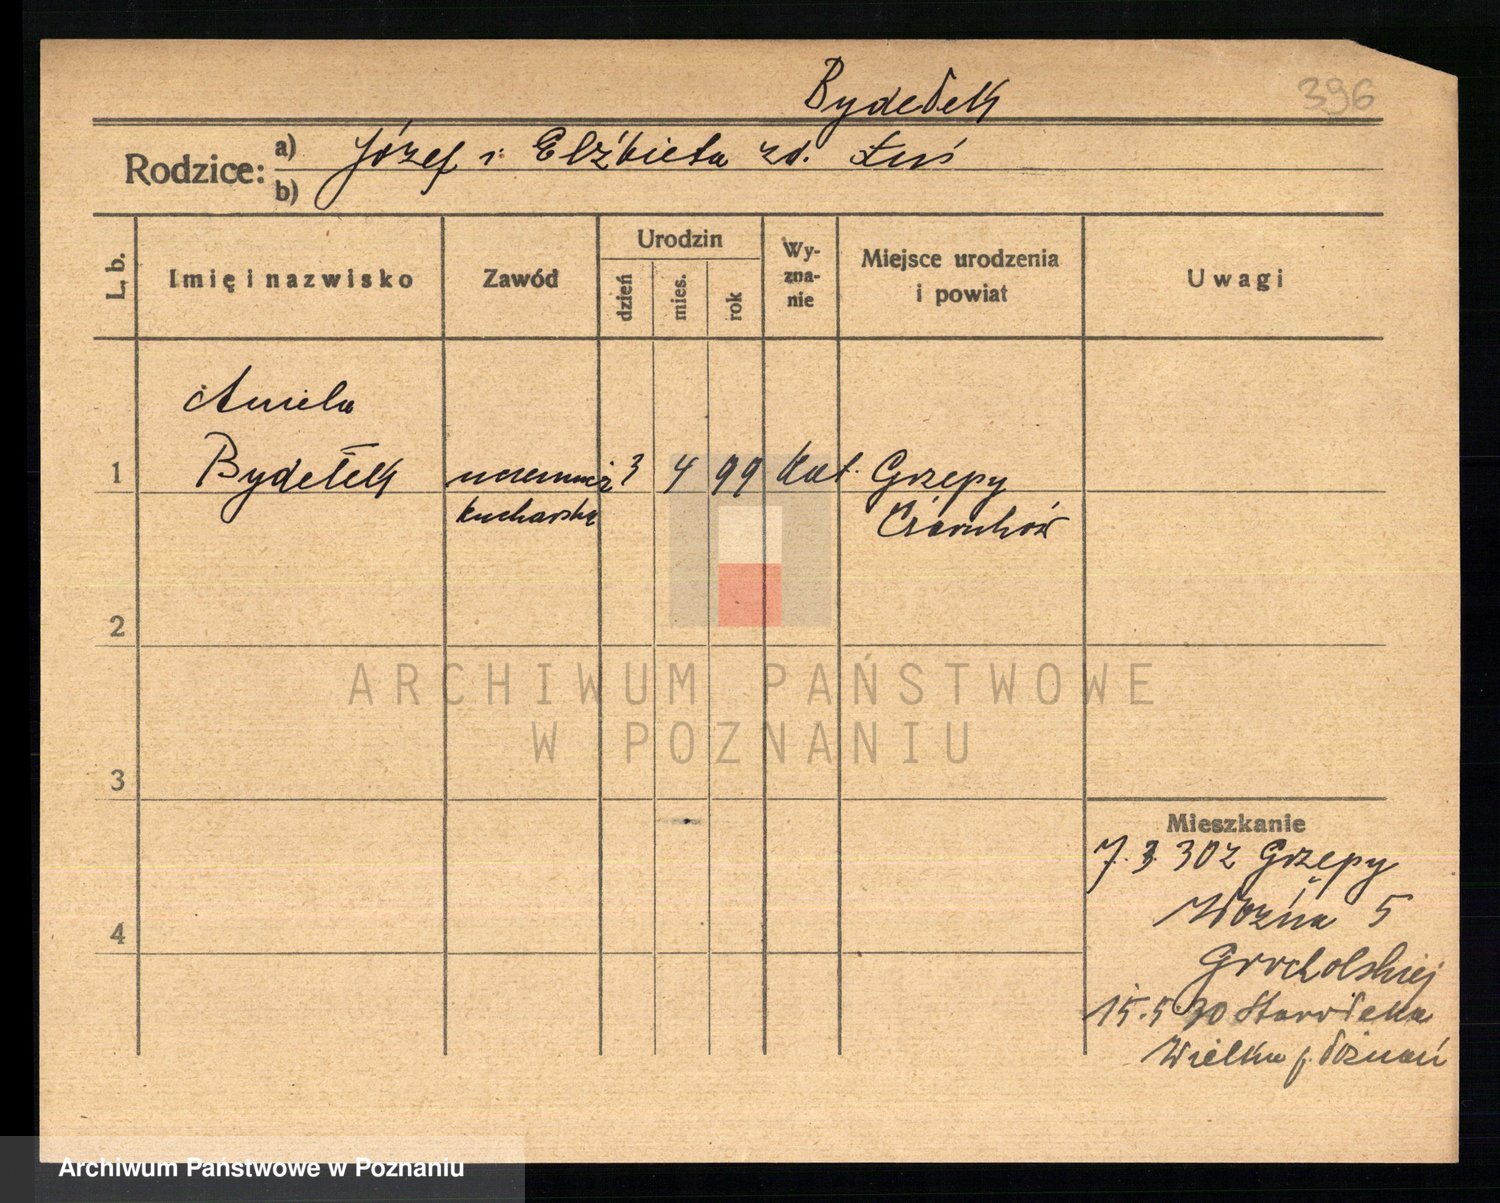 Bydełek
396
Rodzice: a) Józef i Elżbieta zd. Łuś
b)
L. b.
Imię i nazwisko
Zawód
Urodzin
dzień
mies.
rok
Wy-
zna-
nie
Miejsce urodzenia
i powiat
Uwagi
Aniela
1 Bydełek uczennica 3 4 99 kat. Grzępy
kucharska Czarnków
2
ARCHIWUM PAŃSTWOWE
W POZNANIU
3
Mieszkanie
7.3.30 z Grzępy
Woźna 5
4
Grocholskiej
15.5.30 Starołęka
Wielka p. Poznań
Archiwum Państwowe w Poznaniu